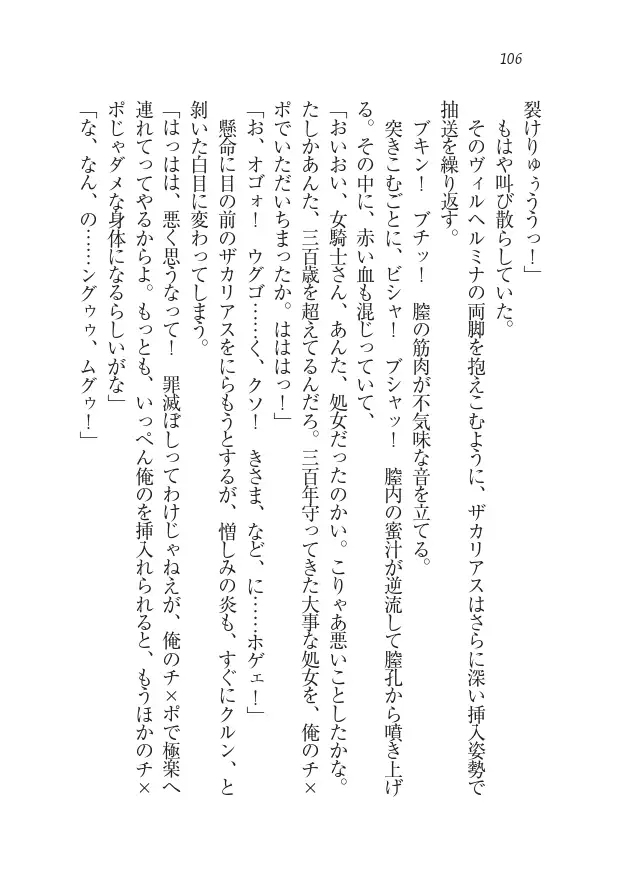 106
裂けりゅぅううっ！」
もはや叫び散らしていた。
そのヴィルヘルミナの両脚を抱えこむように、ザカリアスはさらに深い挿入姿勢で
抽送を繰り返す。
ブキン！　ブチッ！　膣の筋肉が不気味な音を立てる。
突きこむごとに、ビシャ！　ブシャッ！　膣内の蜜汁が逆流して膣孔から噴き上げ
る。その中に、赤い血も混じっていて、
「おいおい、女騎士さん、あんた、処女だったのかい。こりゃあ悪いことしたかな。
たしかあんた、三百歳を超えてるんだろ。三百年守ってきた大事な処女を、俺のチ×
ポでいただいちまったか。はははっ！」
「お、オゴォ！　ウグゴ……く、クソ！　きさま、など、に……ホゲェ！」
懸命に目の前のザカリアスをにらもうとするが、憎しみの炎も、すぐにクルン、と
剝いた白目に変わってしまう。
「はっはは、悪く思うなって！　罪滅ぼしってわけじゃねえが、俺のチ×ポで極楽へ
連れてってやるからよ。もっとも、いっぺん俺のを挿入れられると、もうほかのチ×
ポじゃダメな身体になるらしいがな」
「な、なん、の……ングゥゥ、ムグゥ！」